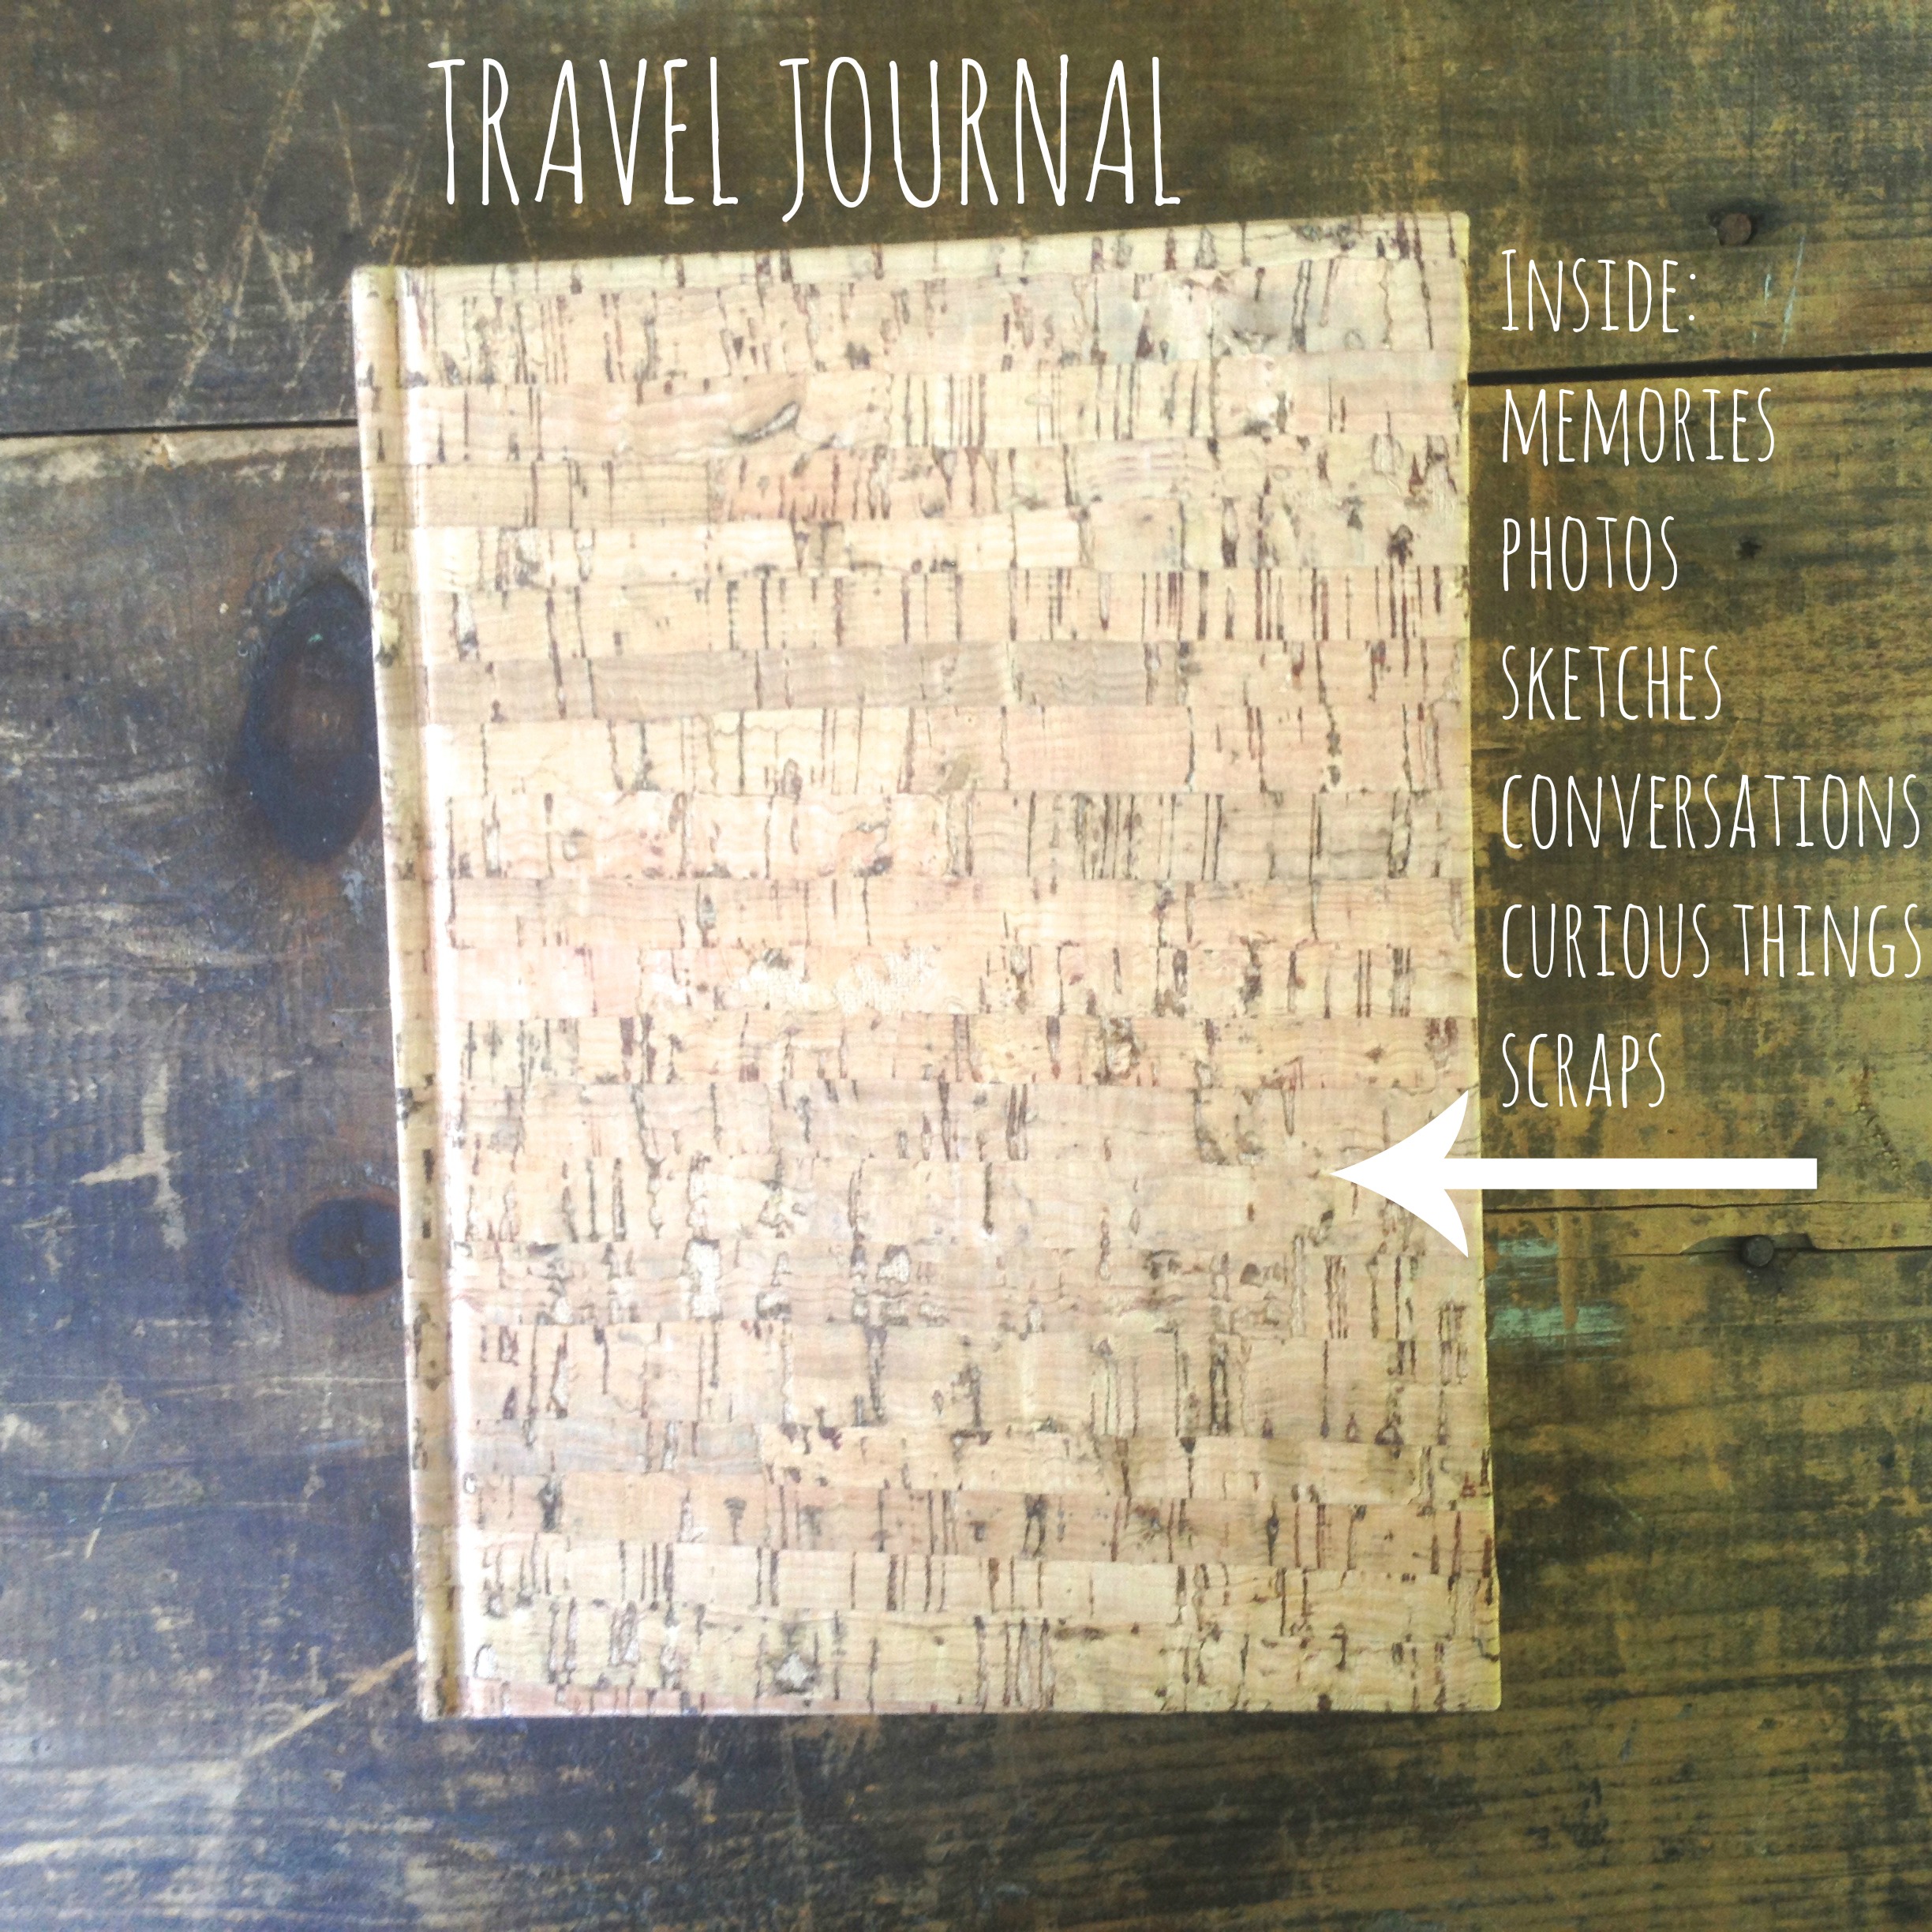 TRAVEL JOURNAL
INSIDE:
MEMORIES
PHOTOS
SKETCHES
CONVERSATIONS
CURIOUS THINGS
SCRAPS